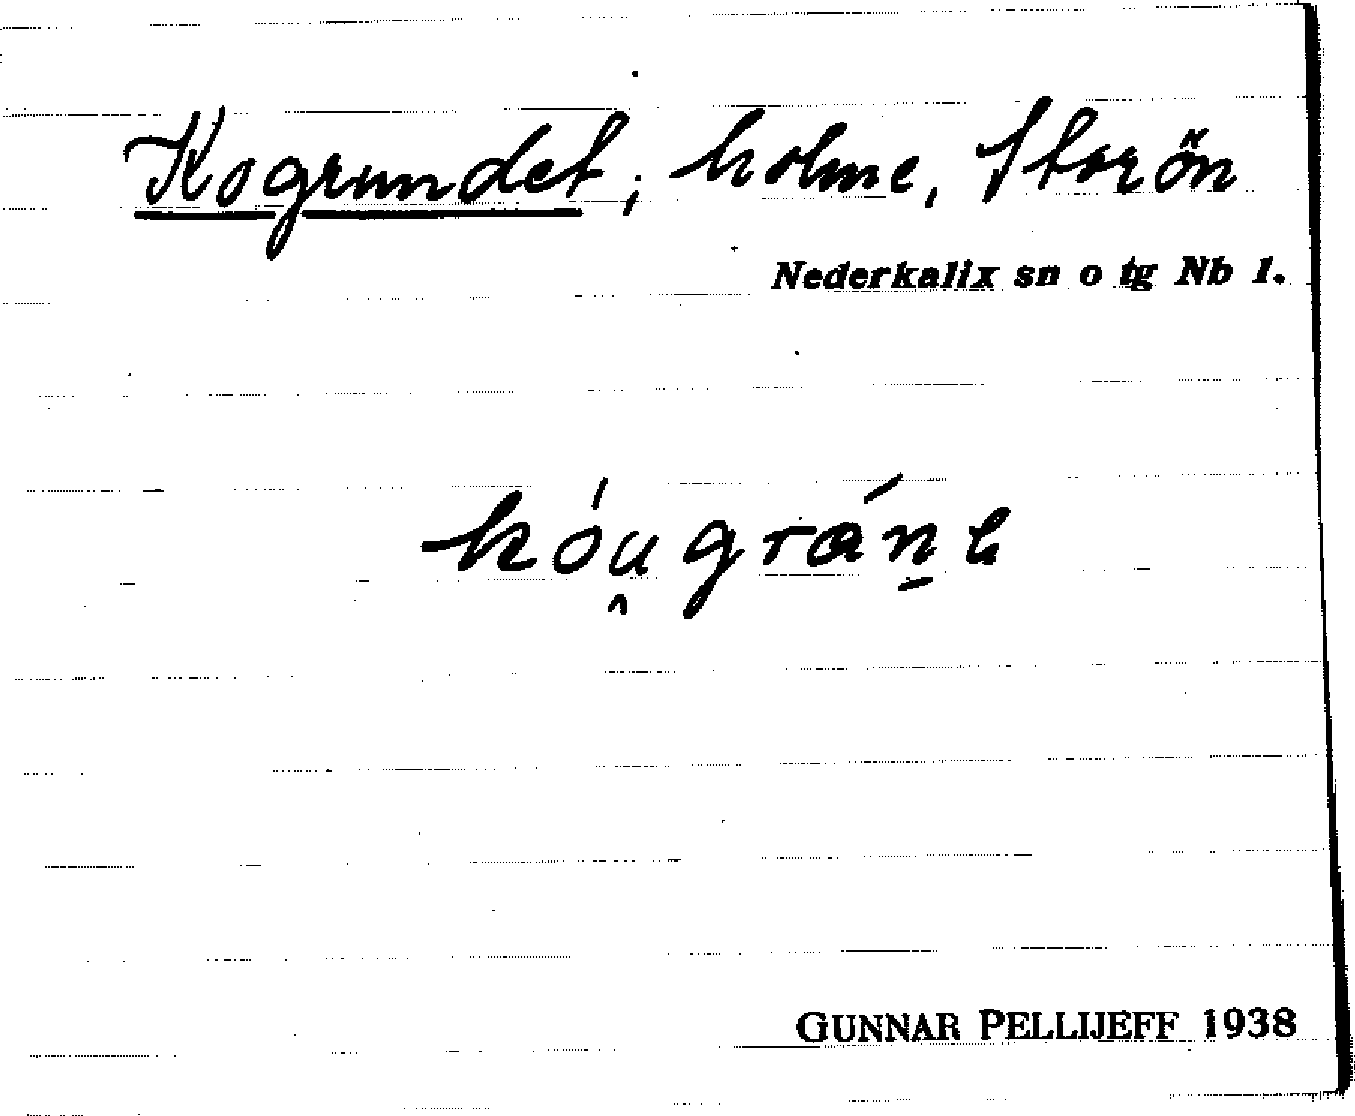 Kogrundet, holme, Storön
Nederkalix sn o tg Nb 1.
kóu̯gráṉe
GUNNAR PELLIJEFF 1938